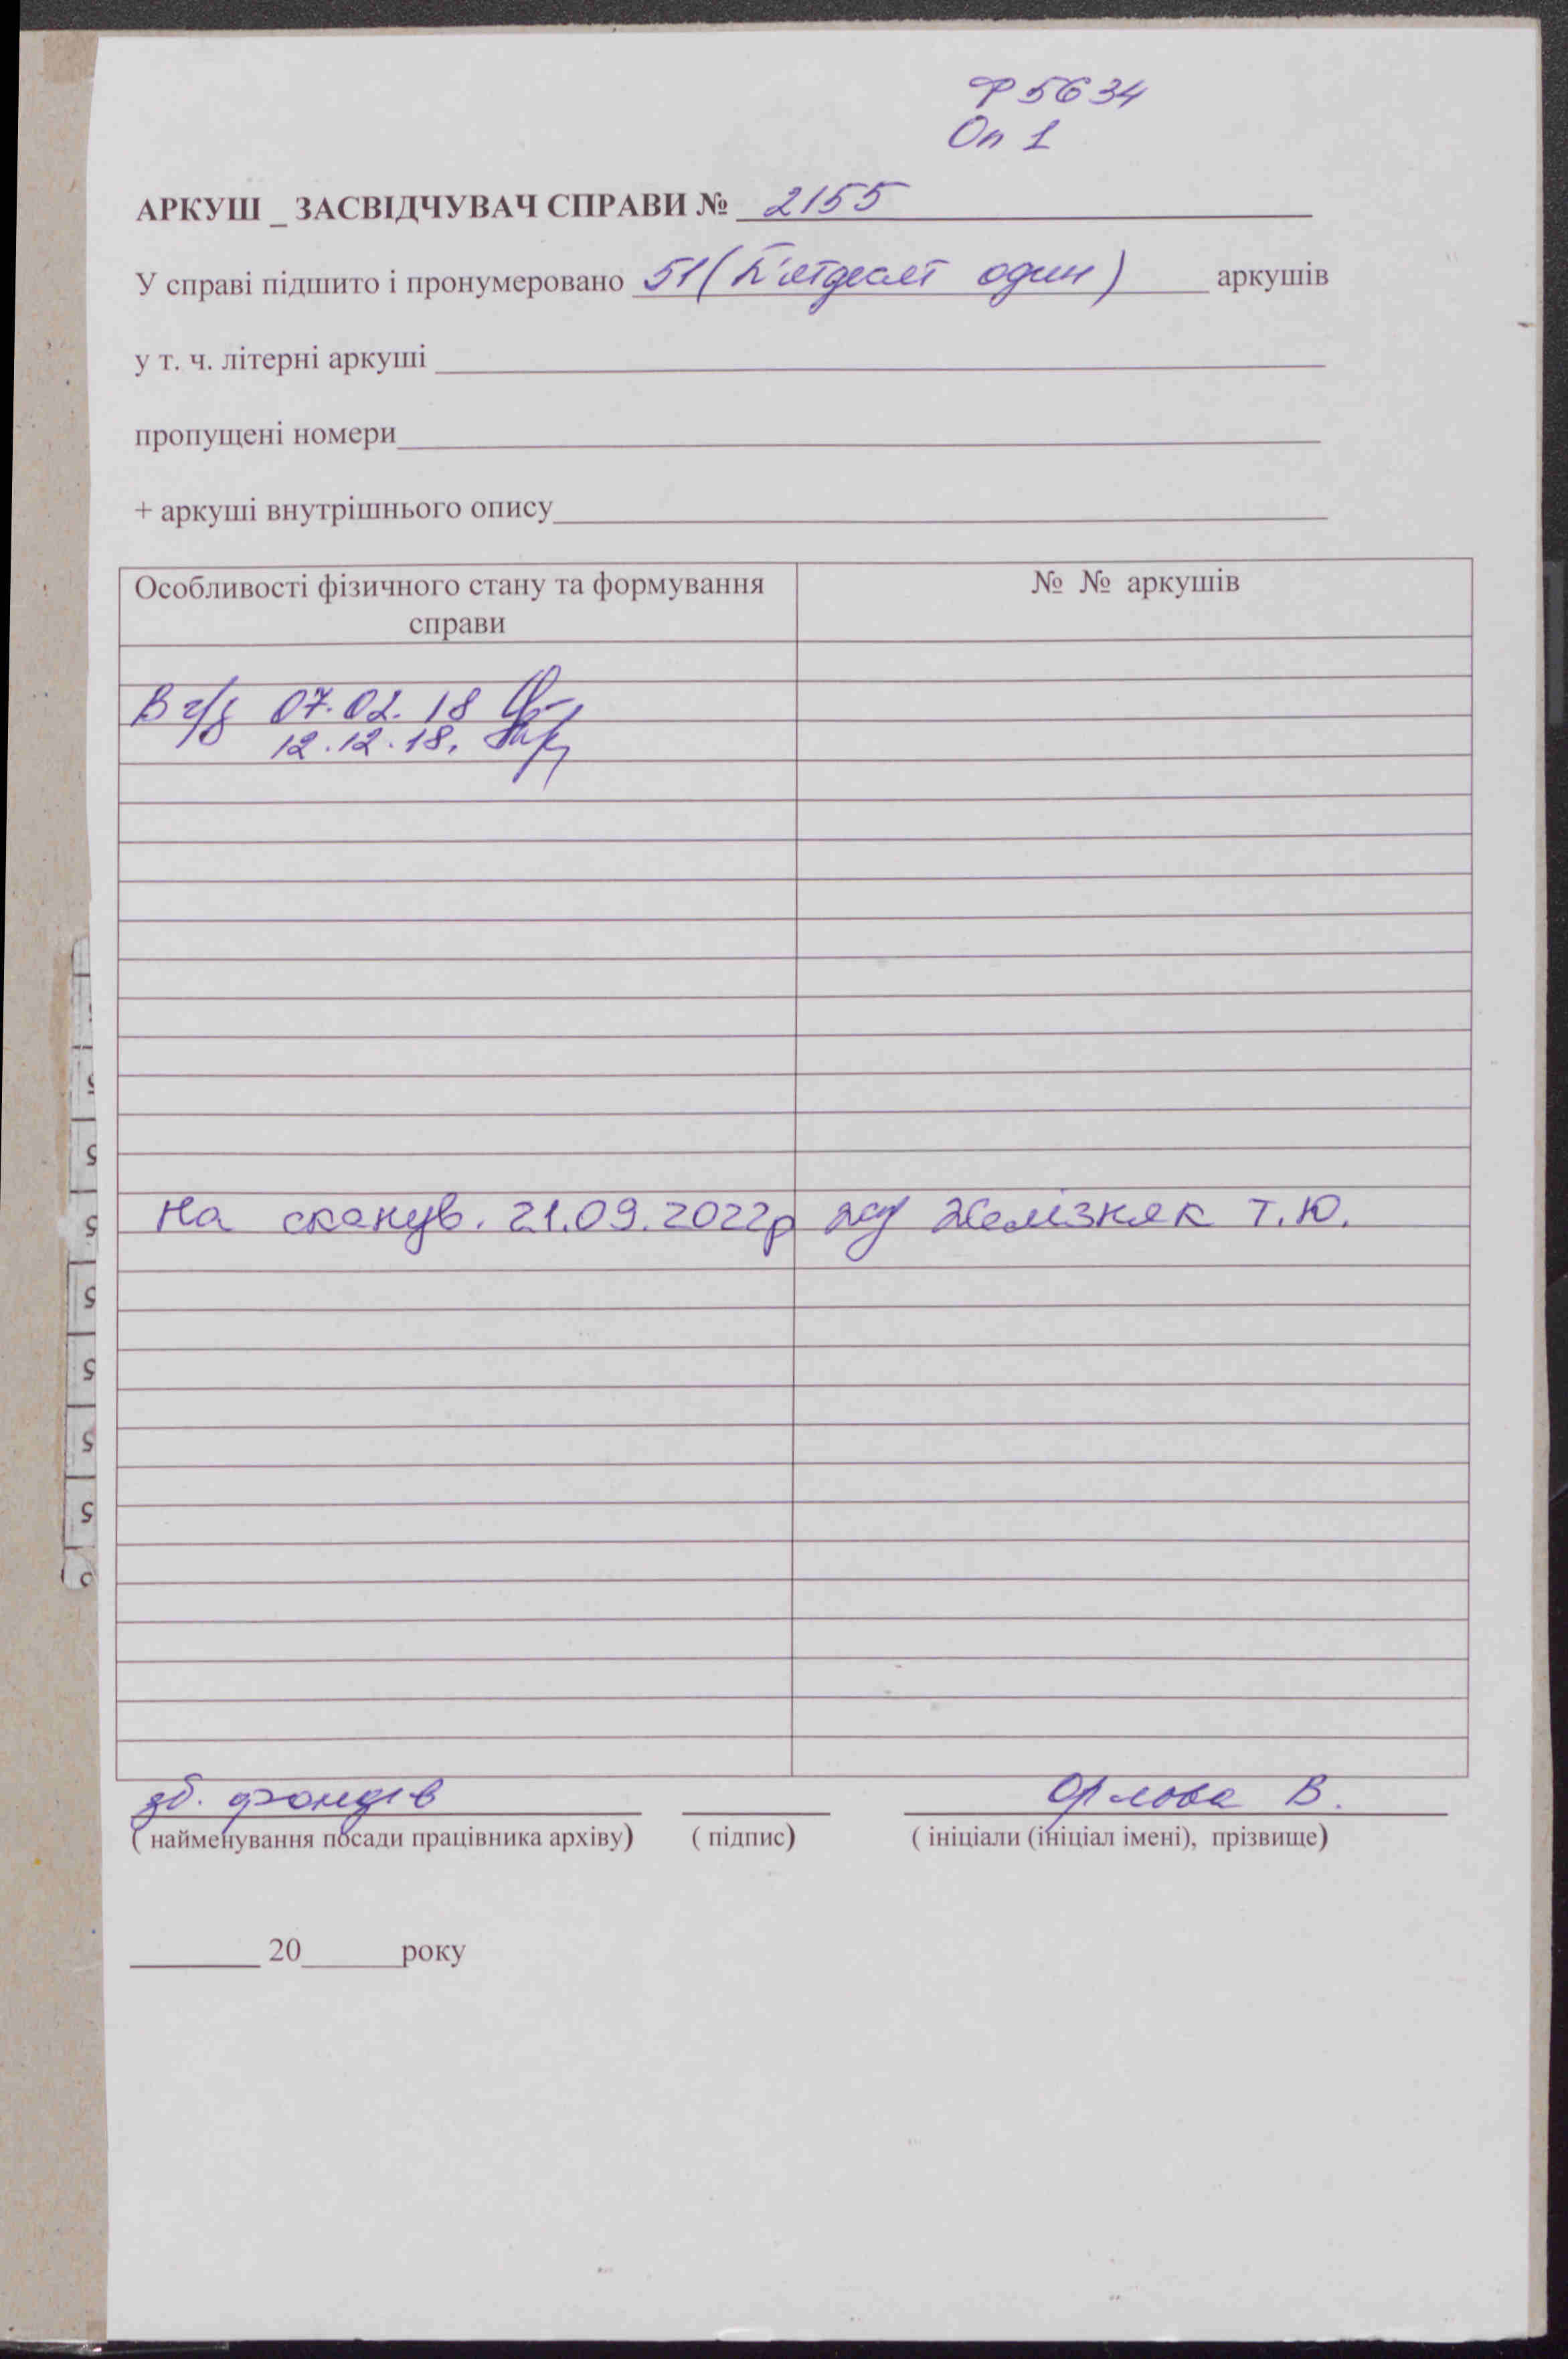 Ф 5634
Оп 1
АРКУШ _ ЗАСВІДЧУВАЧ СПРАВИ № 2155
У справі підшито і пронумеровано 51 (П'ятдесят один) аркушів
у т. ч. літерні аркуші
пропущені номери
+ аркуші внутрішнього опису
Особливості фізичного стану та формування справи
№ № аркушів
В 07.02.18
12.12.18.
На сканув. 21.09.2022р Желізняк Т.Ю.
зб. фондів Орлова В.
( найменування посади працівника архіву) ( підпис) ( ініціали (ініціал імені), прізвище)
20 року